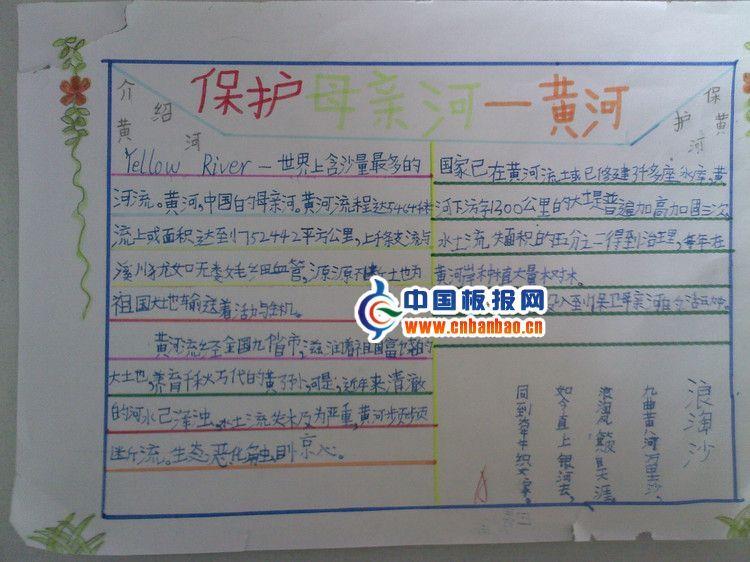 保护母亲河—黄河
介绍
黄河
保黄
护河
Yellow River — 世界上含沙量最多的
河流。黄河,中国的母亲河。黄河流程达5464米
流域面积达到752442平方公里,上千条支流与
溪川犹如无数毛细血管,源源不断土也为
祖国大地输送着活力与生机。
黄河流经全国九省市,滋润着祖国富饶的
大土也,养育千秋万代的黄子孙,可是,近年来清澈
的河水已浑浊。水土流失极为严重,黄河步频频
断流。生态恶化触目惊心。
国家已在黄河流域已修建3千多座水库,黄
河下游1300公里的大堤普遍加高加固三次。
水土流失面积的五分之二得到治理,每年在
黄河岸种植大量树木。
到保卫母亲河
浪淘沙
九曲黄河万里沙,
浪淘风簸自天涯。
如今直上银河去,
同到牵牛织女家。
中国板报网
www.cnbanbao.cn